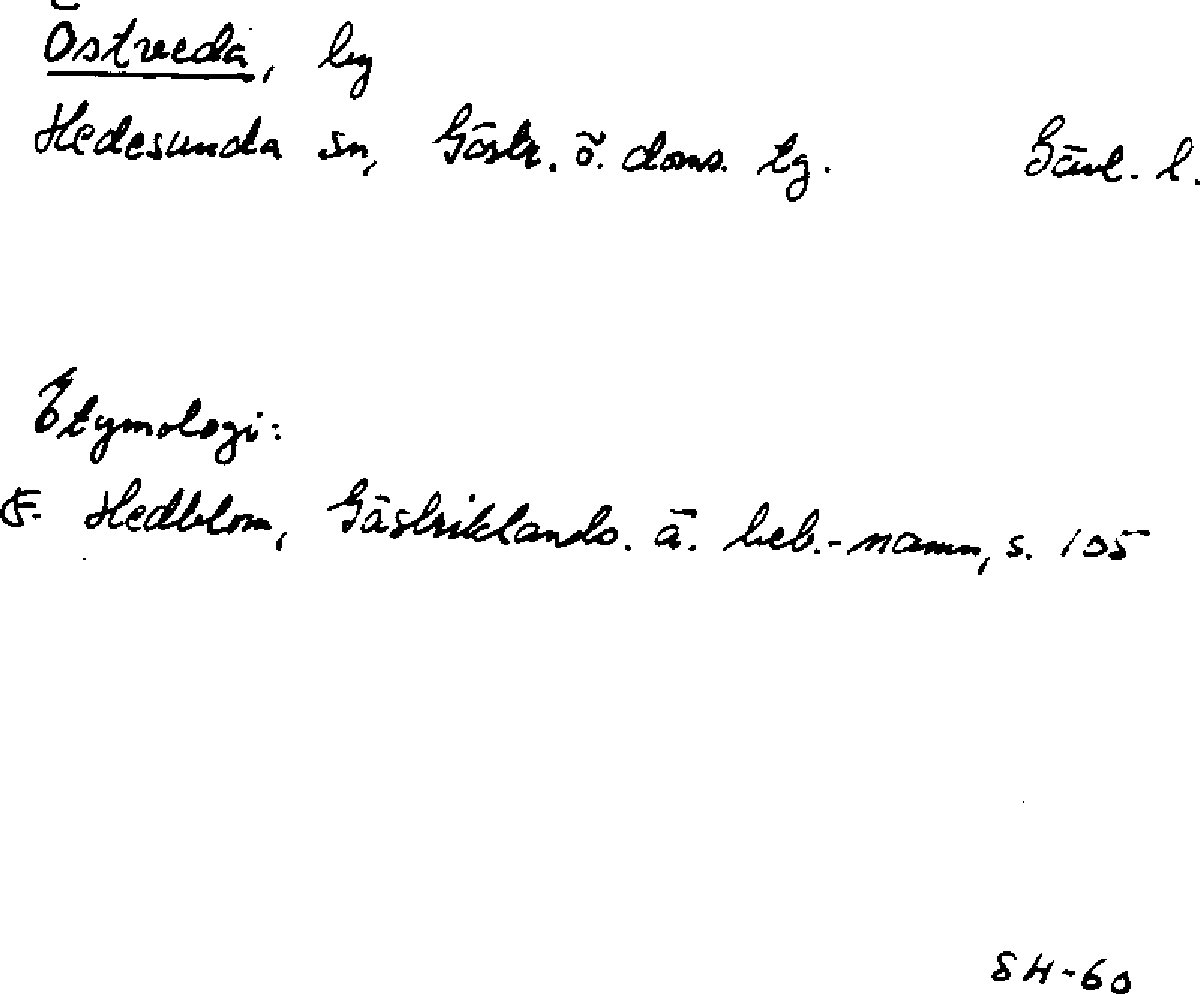 Östveda, by
Hedesunda sn, Gästr. ö. doms. tg. Gävl. l.
Etymologi:
F. Hedblom, Gästriklands. ä. beb.-namn, s. 105
SH-60